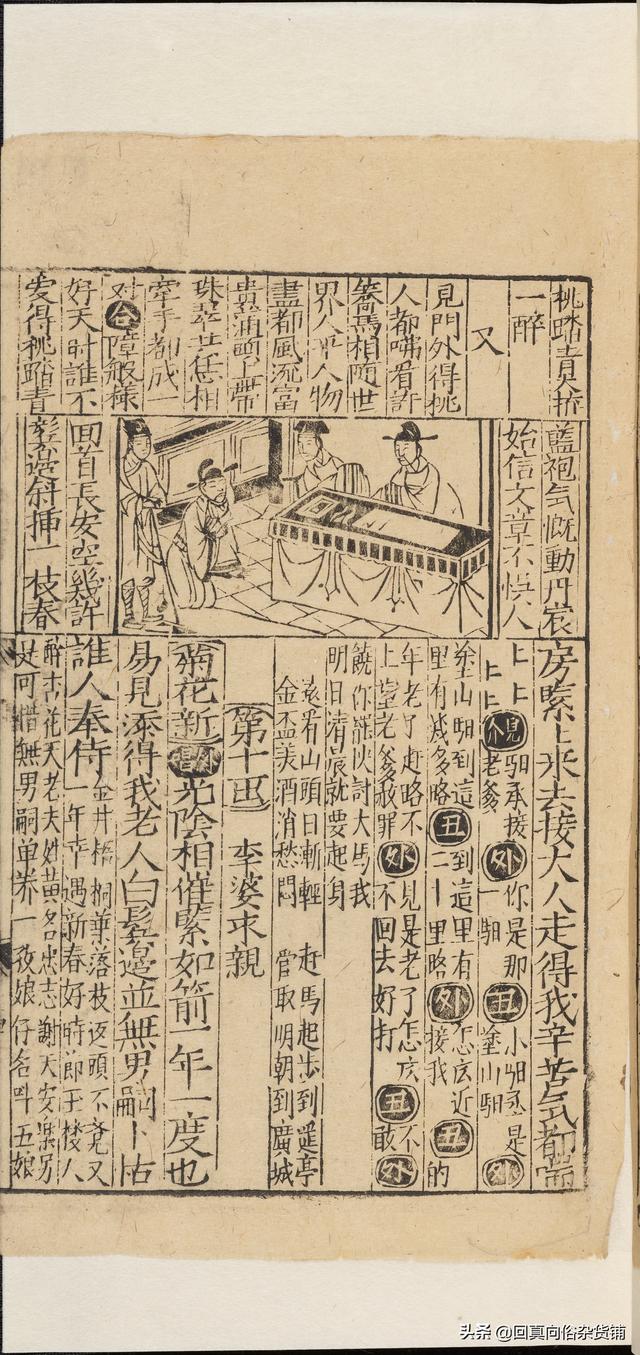 桃踏青
一醉
又
見門外得桃
人都 看許
馬相随世
界人 人物
盡都風流富
貴滿頭上帶
珠翠 恁相
牽手都成一
对合障般樣
好天时誰不
愛得桃踏青
藍袍气慨動丹
始信文章不悞人
回首長安空幾許
鬓邊斜揷一枝春
房緊上來去接大人走得我辛苦气都喘
上上 驲承接外你是那丑小驲丞是外
上上 老爹 一驲 丑 塗山驲
塗山驲到這丑到這里有外怎庅近丑的
里有减多路 二十里路 接我
年老了赶路不外見是老了怎庅丑不
上望老爹赦罪 不回去好打 敢外
饒你 討大馬我
明日清晨就要起身
遠看山頭日漸輕 赶馬起步到遥亭
金盃美酒消愁悶 管取明朝到廣城
第十四 李婆求親
菊花新 光陰相催緊如箭一年一度也
易見添得我老人白鬓邊並無男嗣卜怙
誰人奉侍 金井梧桐葉落枝返頭不覓又
一年幸遇新春好時節王楼人
醉古花天老夫姓黄名忠志謝天安樂另
是可惜無男嗣单养一孜娘仔名叫五娘
头条 @回真向俗杂货铺